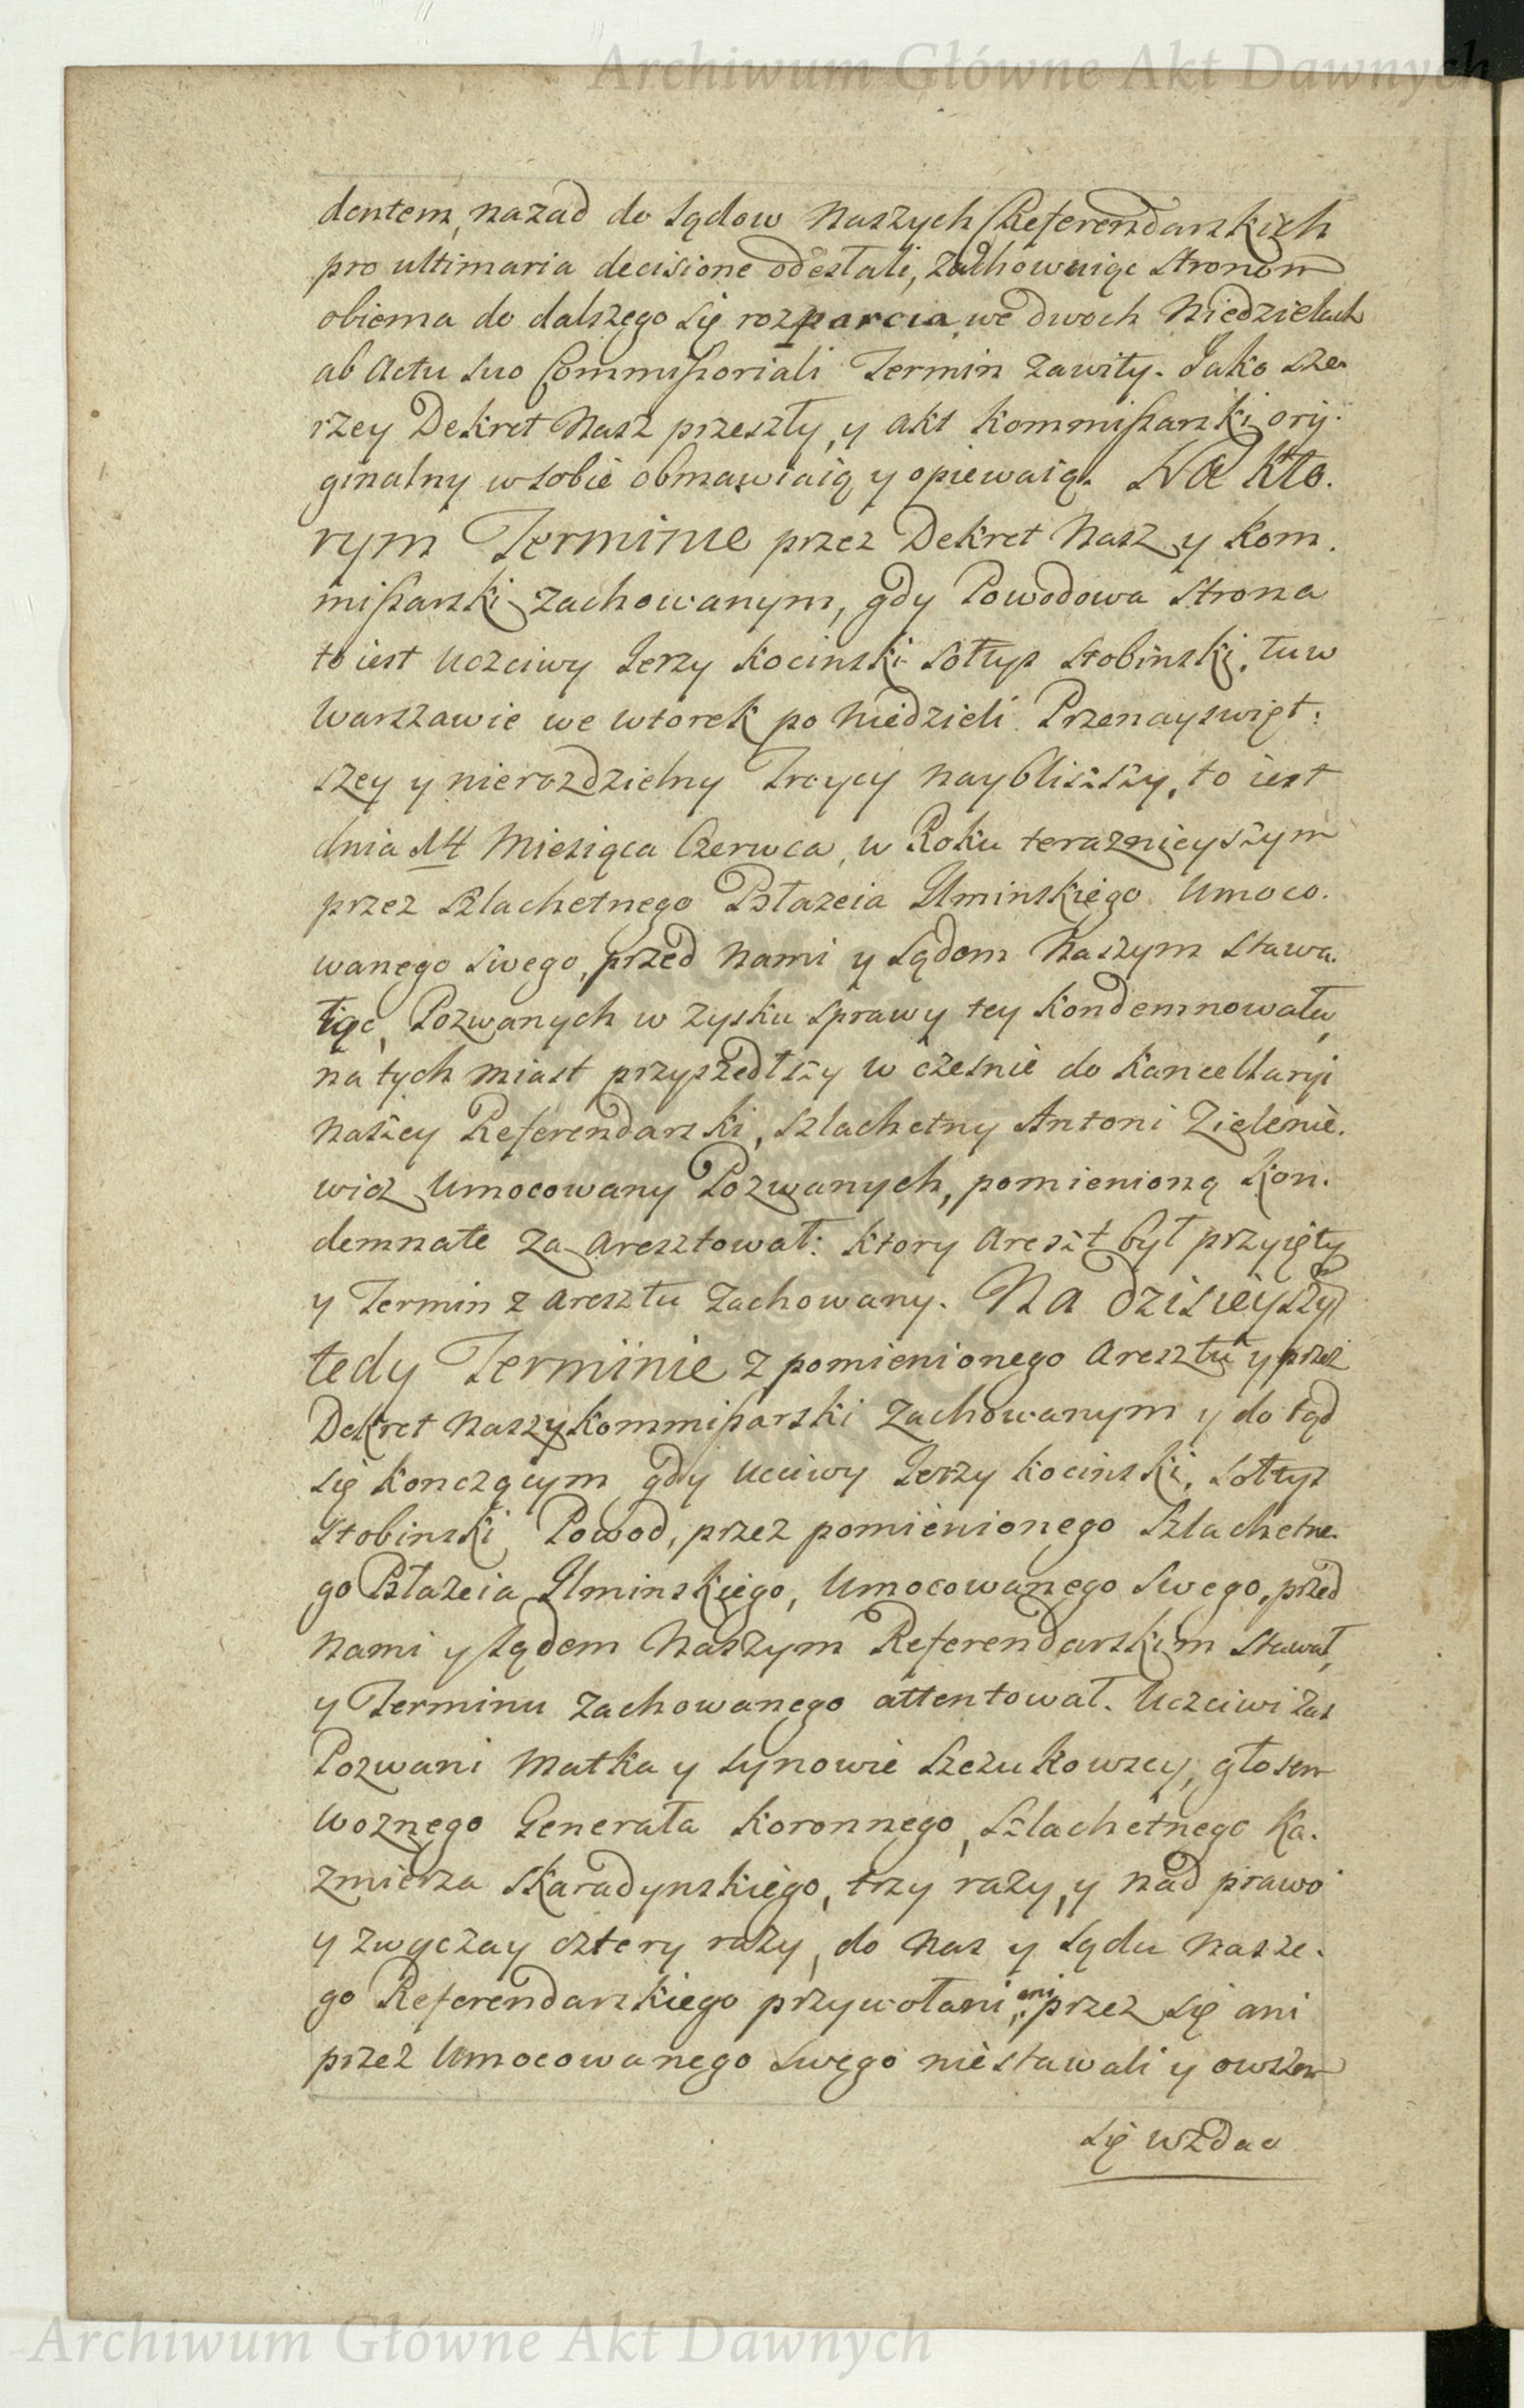 Archiwum Główne Akt Dawnych
dentem, nazad do Sądow Naszych Referendarskich
pro ultimaria decisione odesłali, zachowuiąc Stronom
obiema do dalszego się rozparcia we dwoch Niedzielach
ab Actu suo Commissoriali Termin zawity. Jako sze-
rzey Dekret Nasz przeszły, y akt Kommissarski ory-
ginalny w sobie obmawiaią y opiewaią. Na kto-
rym Terminie przez Dekret Nasz y Kom-
missarski zachowanym, gdy Powodowa Strona
to iest Uczciwy Jerzy Kocinski Sołtys Stobinski, tu w
Warszawie we wtorek po Niedzieli Przenayswięt:
szey y nierozdzielny Trcycy naybliższy, to iest
dnia 14 Miesiąca Czerwca, w Roku teraznieyszym
przez Szlachetnego Błazeia Uminskiego Umoco-
wanego swego, przed Nami y Sądem Naszym stawa-
iąc, Pozwanych w zysku sprawy tey kondemnowała,
na tych miast przyszedłszy w cześnie do Kancellaryi
Naszey Referendarski, Szlachetny Antoni Zielenie-
wicz Umocowany Pozwanych, pomienioną Kon-
demnate za aresztował: ktory Areszt był przyięty
y Termin z aresztu zachowany. Na dzisieyszym
tedy Terminie z pomienionego Aresztu y przez
Dekret Nasz y Kommissarski zachowanym y do tąd
się konczącym gdy Ucciwy Jerzy Kocinski, Sołtys
Stobinski Powod, przez pomienionego Szlachetne-
go Błazeia Uminskiego, Umocowanego Swego, przed
Nami y Sądem Naszym Referendarskim stawał,
y Terminu zachowanego attentował. Uczciwi zas
Pozwani Matka y Synowie Szczukowscy, głosem
Woznego Generała Koronnego, Szlachetnego Ka-
zmierza Skaradynskiego, trzy razy, y nad prawo
y zwyczay cztery razy, do Nas y Sądu Nasze-
go Referendarskiego przywołani, ani przez się ani
przez Umocowanego swego niestawali y owszem
się wzdac
Archiwum Główne Akt Dawnych